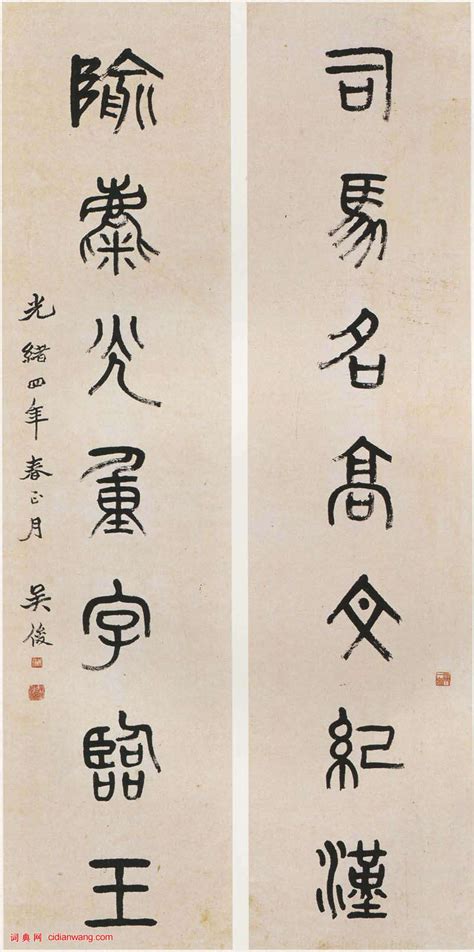 司馬名高文紀漢
隃麋光重字臨王
光緒四年春正月 吴俊
词典网 cidianwang.com